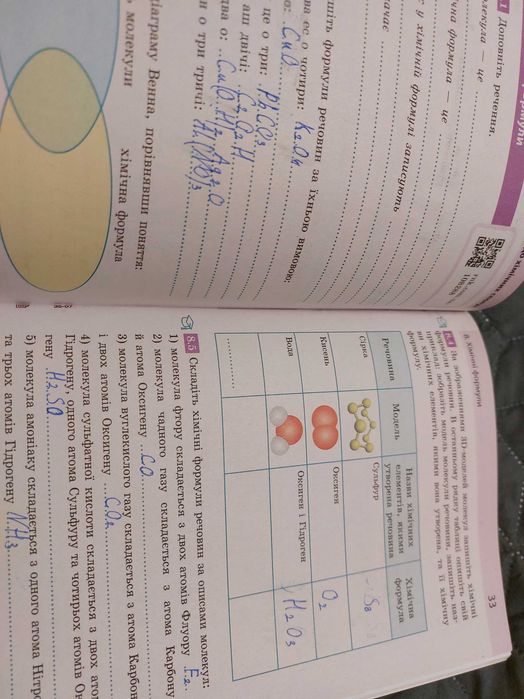 Доповніть речення.
лекула — це
ична формула — це
у хімічній формулі записують
ачає
шіть формули речовин за їхньою вимовою:
ва ес о чотири: K₂O₄
о: CuO
це о три: PbCO₃
аш двічі:
два о:
н о три тричі:
діаграму Венна, порівнявши поняття:
молекули
хімічна формула
8. Хімічні формули
33
За зображеннями 3D-моделей молекул запишіть хімічні
формули речовин. В останньому рядку таблиці опишіть свій
приклад: зобразіть модель молекули речовини, запишіть наз-
ви хімічних елементів, якими вона утворена, та її хімічну
формулу.
Речовина
Модель
Назви хімічних елементів, якими утворена речовина
Хімічна формула
Сірка
Сульфур
S₈
Кисень
Оксиген
O₂
Вода
Оксиген і Гідроген
H₂O₃
8.5 Складіть хімічні формули речовин за описами молекул:
1) молекула фтору складається з двох атомів Флуору F₂
2) молекула чадного газу складається з атома Карбону
й атома Оксигену CO
3) молекула вуглекислого газу складається з атома Карбон
і двох атомів Оксигену CO₂
4) молекула сульфатної кислоти складається з двох атом
Гідрогену, одного атома Сульфуру та чотирьох атомів Ок
гену H₂SO
5) молекула амоніаку складається з одного атома Нітро
та трьох атомів Гідрогену NH₃